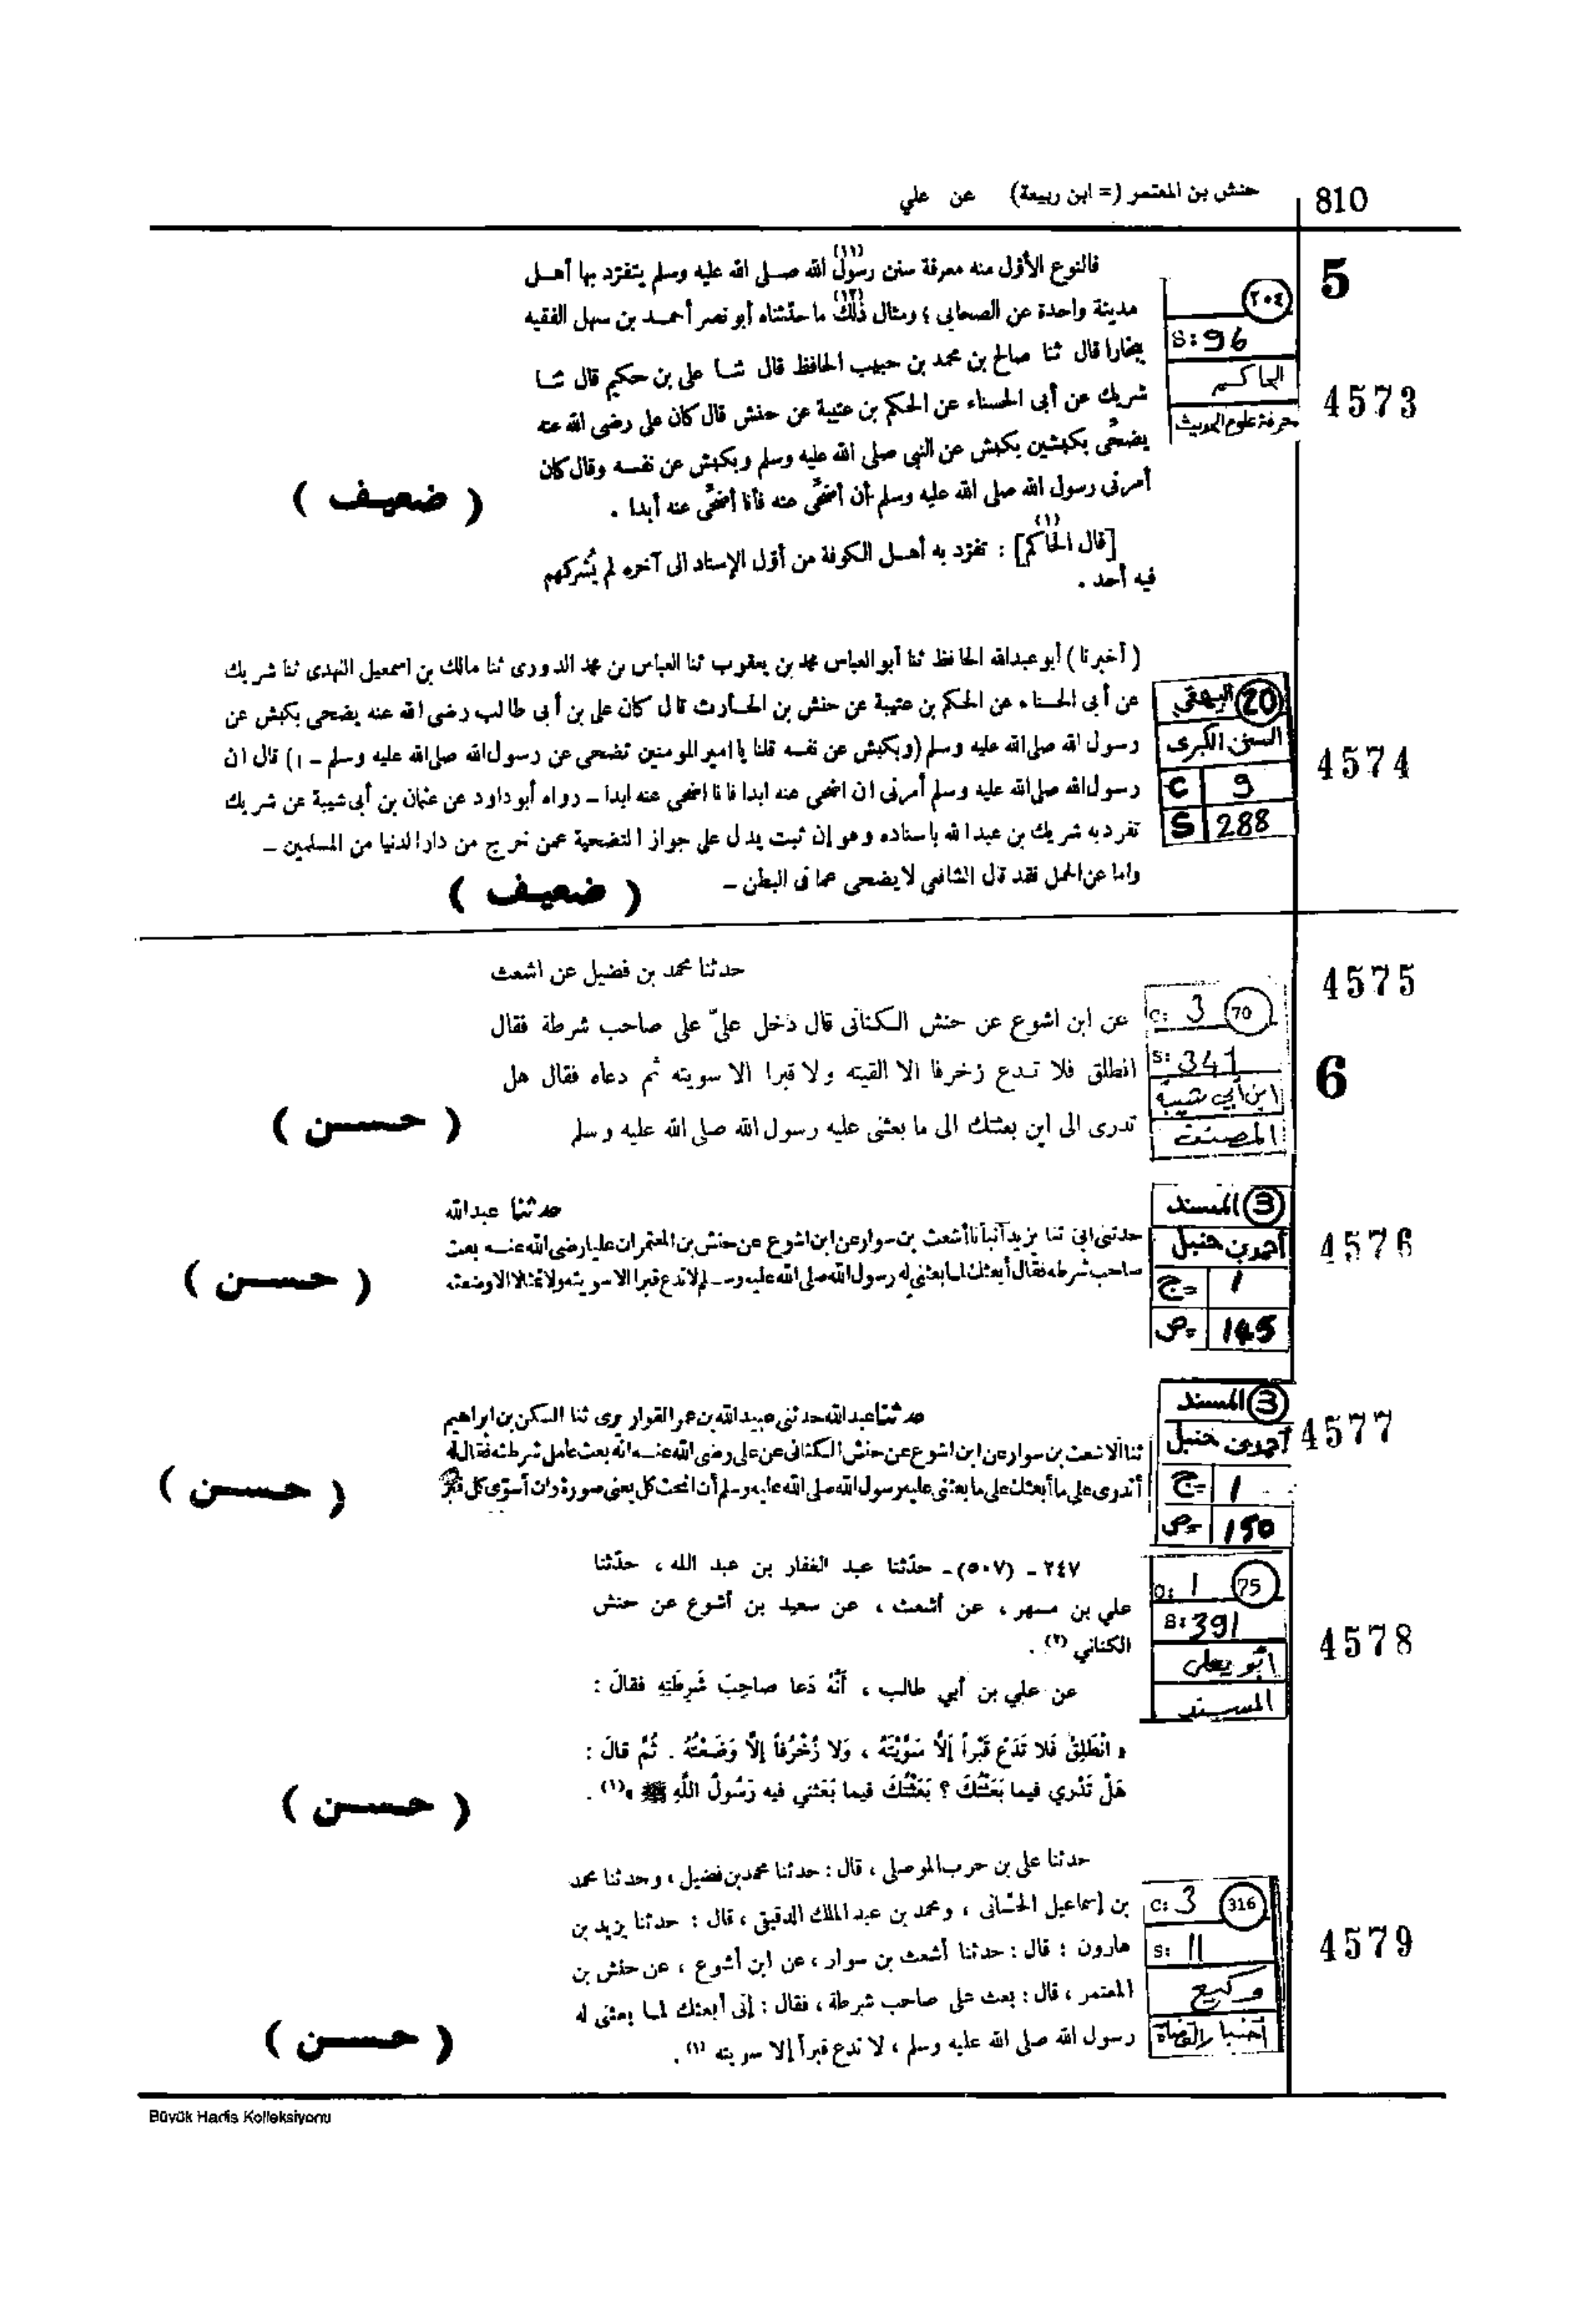 810
حنش بن المعتمر (= ابن ربيعة) عن علي
5
4573
٢٠٤
S: 96
الحاكم
معرفة علوم الحديث
فالنوع الأوّل منه معرفة سنن رسول(١١) الله صلى الله عليه وسلم يتفرّد بها أهل
مدينة واحدة عن الصحابى ؛ ومثال ذلك(١٢) ما حدّثناه أبو نصر أحمد بن سهل الفقيه
ببخارا قال ثنا صالح بن محمد بن حبيب الحافظ قال ثنا على بن حكيم قال ثنا
شريك عن أبى الحسناء عن الحكم بن عتيبة عن حنش قال كان على رضى الله عنه
يضحّى بكبشين بكبش عن النبى صلى الله عليه وسلم وبكبش عن نفسه وقال كان
أمرنى رسول الله صلى الله عليه وسلم أن أضحّى عنه فأنا أضحّى عنه أبدا .
( ضعيف )
[قال الحاكم](١) : تفرّد به أهل الكوفة من أوّل الإسناد الى آخره لم يُشركهم
فيه أحد .
4574
20 البيهقي
السنن الكبرى
C 9
S 288
( أخبرنا ) أبو عبدالله الحافظ ثنا أبو العباس محمد بن يعقوب ثنا العباس بن محمد الدورى ثنا مالك بن اسمعيل النهدى ثنا شريك
عن أبى الحسناء عن الحكم بن عتيبة عن حنش بن الحارث قال كان على بن أبى طالب رضى الله عنه يضحى بكبش عن
رسول الله صلى الله عليه وسلم (وبكبش عن نفسه قلنا يا امير المومنين تضحى عن رسول الله صلى الله عليه وسلم - ١) قال ان
رسول الله صلى الله عليه وسلم أمرنى ان اضحى عنه ابدا فانا اضحى عنه ابدا – رواه أبو داود عن عثمان بن أبى شيبة عن شريك
تفرد به شريك بن عبد الله باسناده وهو إن ثبت يدل على جواز التضحية عمن خرج من دار الدنيا من المسلمين –
واما عن الحمل فقد قال الشافعى لا يضحى عما فى البطن –
( ضعيف )
4575
6
C: 3 70
S: 341
ابن أبي شيبة
المصنف
حدثنا محمد بن فضيل عن اشعث
عن ابن اشوع عن حنش الكنانى قال دخل علىّ على صاحب شرطة فقال
انطلق فلا تدع زخرفا الا القيته ولا قبرا الا سويته ثم دعاه فقال هل
تدرى الى اين بعثتك الى ما بعثنى عليه رسول الله صلى الله عليه وسلم
( حسن )
4576
3 المسند
أحمد بن حنبل
ج= 1
ص= 145
حدثنا عبدالله
حدثنى ابى ثنا يزيد أنبأنا أشعث بن سوار عن ابن اشوع عن حنش بن المعتمر ان عليا رضى الله عنه بعث
صاحب شرطه فقال أبعثك لما بعثنى له رسول الله صلى الله عليه وسلم لا تدع قبرا الا سويته ولا تمثالا الا وضعته
( حسن )
4577
3 المسند
أحمد بن حنبل
ج= 1
ص= 150
حدثنا عبدالله حدثنى عبيد الله بن عمر القواريرى ثنا السكن بن ابراهيم
ثنا الاشعث بن سوار عن ابن اشوع عن حنش الكنانى عن على رضى الله عنه انه بعث عامل شرطته فقال له
أتدرى على ما أبعثك على ما بعثنى عليه رسول الله صلى الله عليه وسلم أن انحت كل يعنى صورة وان أسوى كل قبر
( حسن )
4578
C: 1 75
S: 391
أبو يعلى
المسند
٢٤٧ - (٥٠٧) - حدّثنا عبد الغفار بن عبد الله ، حدّثنا
علي بن مسهر ، عن أشعث ، عن سعيد بن أشوع عن حنش
الكناني (٢) .
عن علي بن أبي طالب ، أَنَّهُ دَعا صاحِبَ شَرِطَتِهِ فقالَ :
« انْطَلِقْ فَلا تَدَعْ قَبْراً إلَّا سَوَّيْتَهُ ، وَلا زُخْرُفاً إلَّا وَضَعْتَهُ . ثُمَّ قالَ :
هَلْ تَدْري فيما بَعَثْتُكَ ؟ بَعَثْتُكَ فيما بَعَثني فيه رَسُولُ اللَّهِ ﷺ »(١) .
( حسن )
4579
C: 3 316
S: 11
وكيع
أخبار القضاة
حدثنا على بن حرب الموصلى ، قال : حدثنا محمد بن فضيل ، وحدثنا محمد
بن إسماعيل الحسّانى ، ومحمد بن عبد الملك الدقيقى ، قال : حدثنا يزيد بن
هارون ؛ قال : حدثنا أشعث بن سوار ، عن ابن أشوع ، عن حنش بن
المعتمر ، قال : بعث على صاحب شرطة ، فقال : إنى أبعثك لما بعثنى له
رسول الله صلى الله عليه وسلم ، لا تدع قبراً إلا سويته (١) .
( حسن )
Büyük Hadis Kolleksiyonu